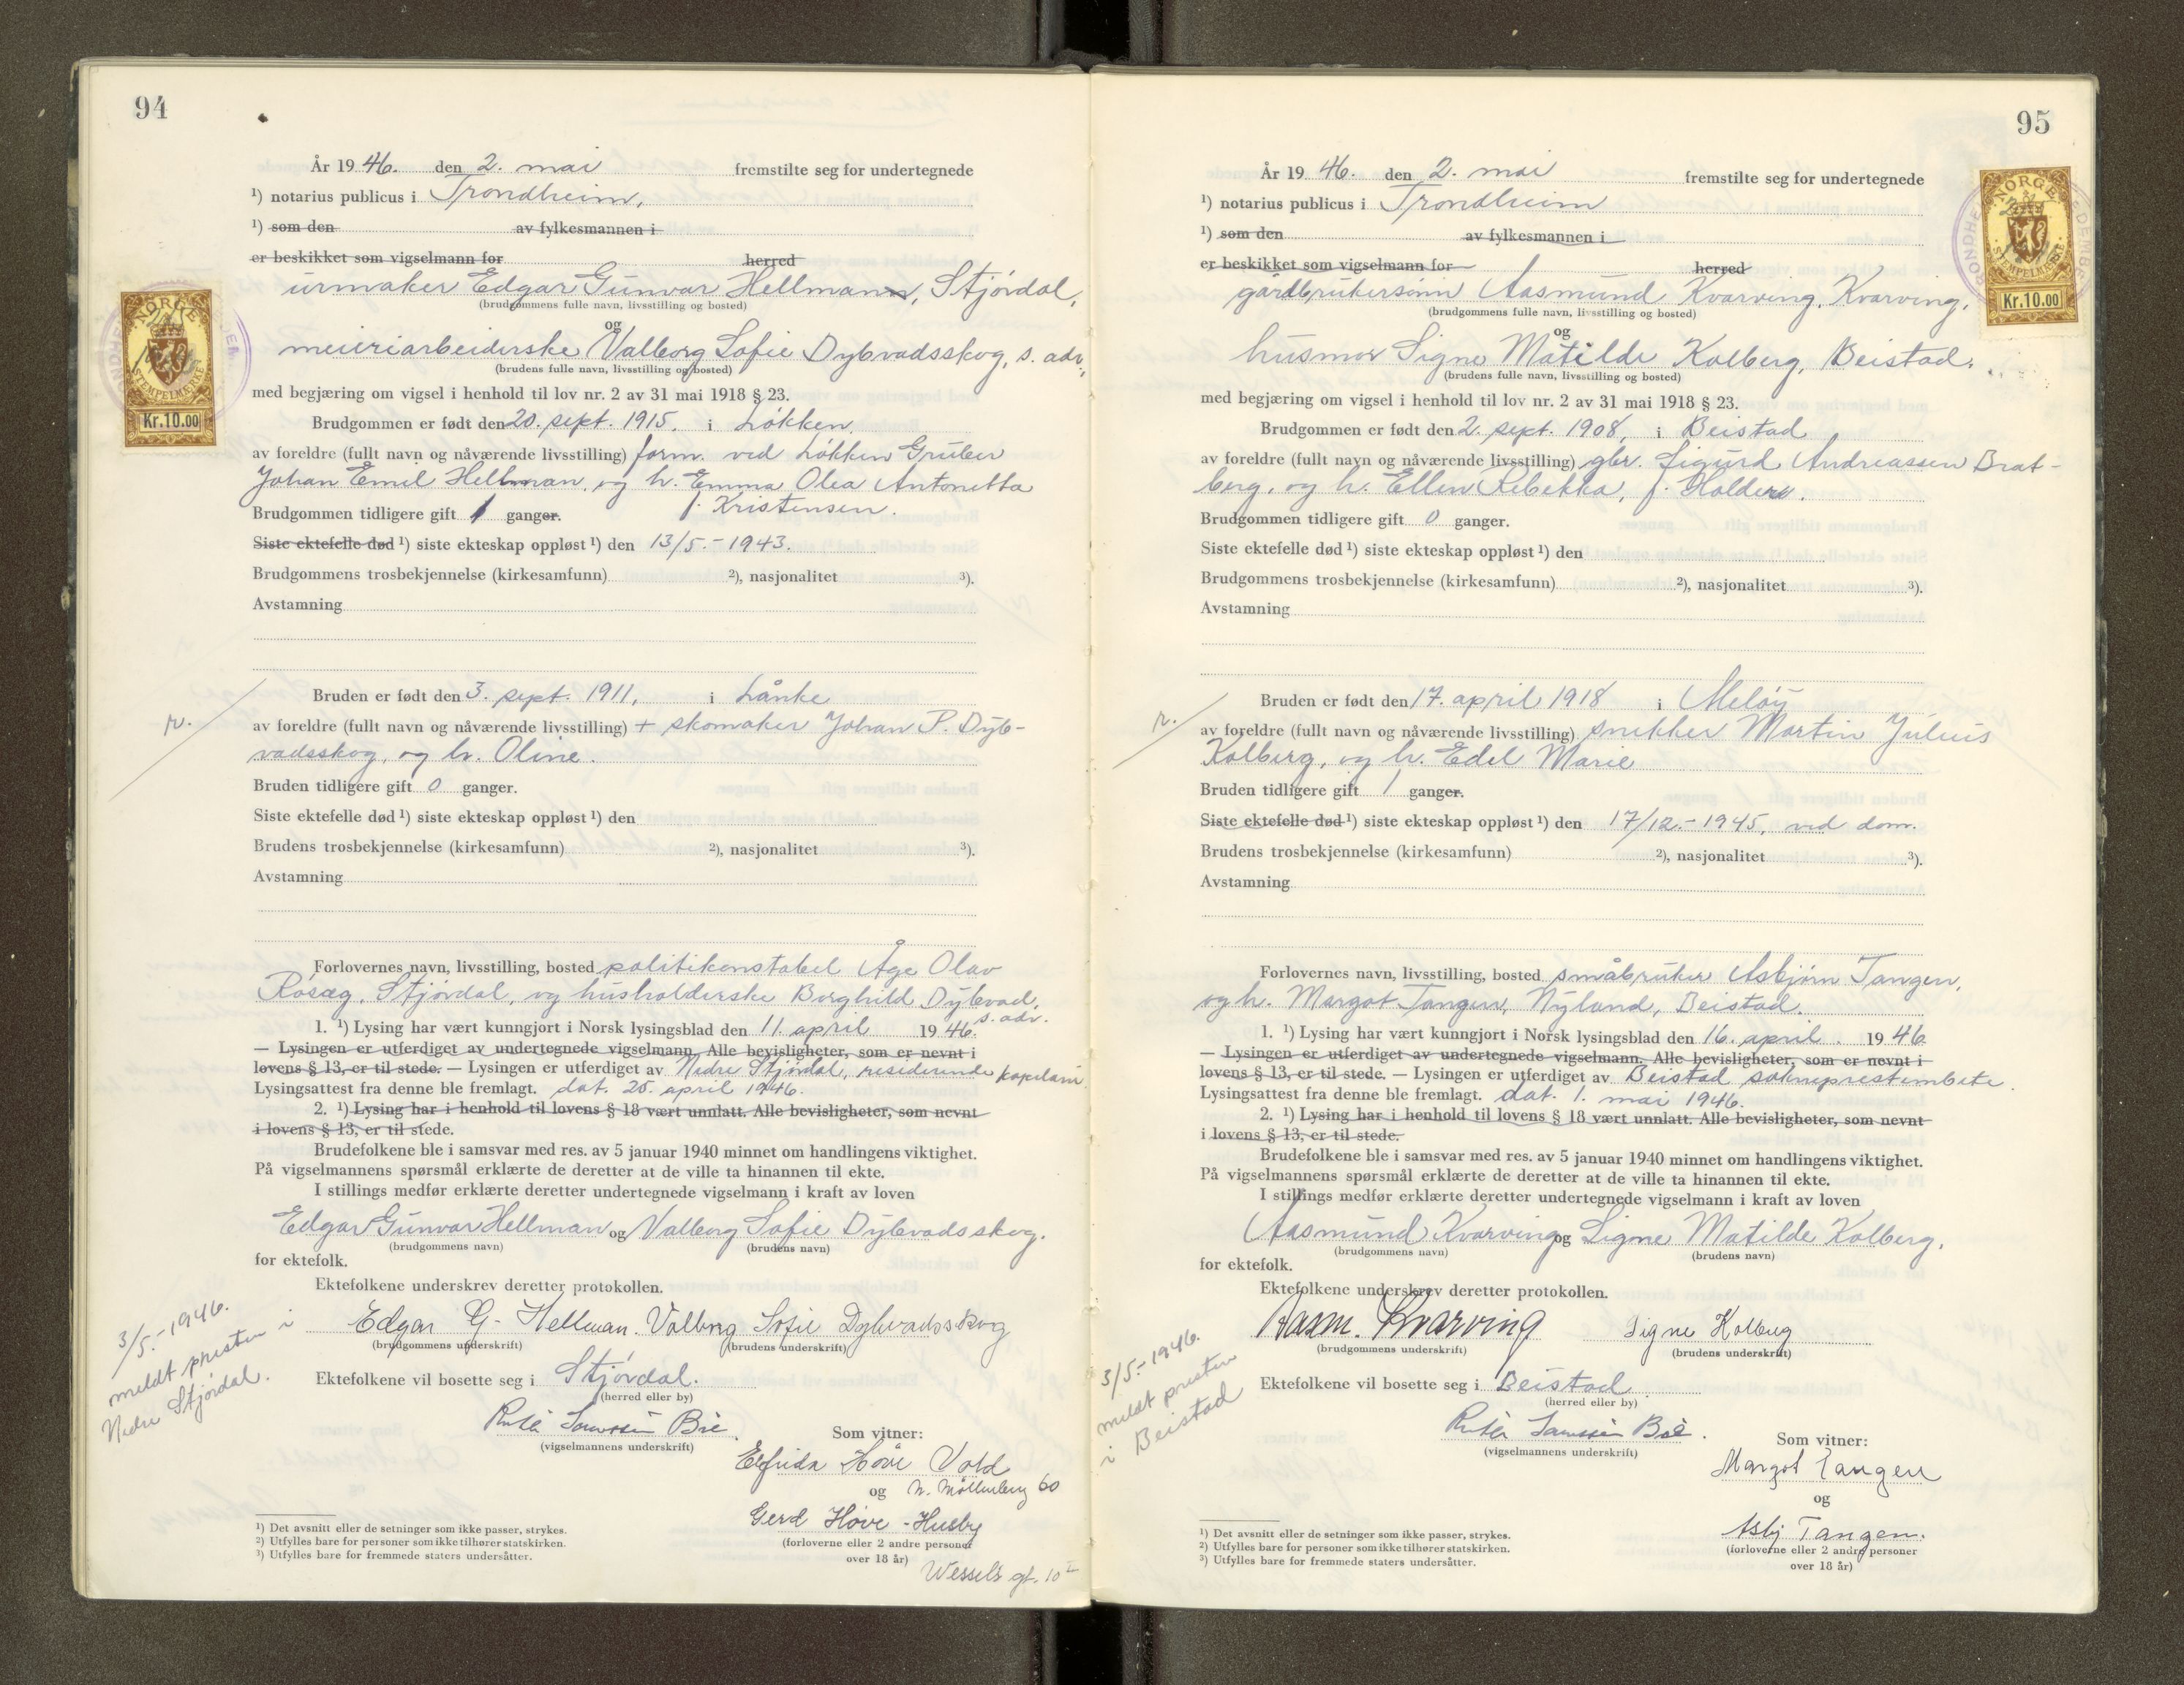 94
År 1946. den 2. mai fremstilte seg for undertegnede
¹) notarius publicus i Trondheim,
¹) som den av fylkesmannen i
er beskikket som vigselmann for herred
urmaker Edgar Gunvar Hellmann, Stjørdal,
(brudgommens fulle navn, livsstilling og bosted)
og
meieriarbeiderske Valborg Sofie Dybvadsskog, s. adr.,
(brudens fulle navn, livsstilling og bosted)
med begjæring om vigsel i henhold til lov nr. 2 av 31 mai 1918 § 23.
NORGE
STEMPELMERKE
Kr.10.00
Brudgommen er født den 20. sept. 1915. i Løkken.
av foreldre (fullt navn og nåværende livsstilling) form. ved Løkken Gruber
Johan Emil Hellman, og h. Emma Olea Antonetta
f. Kristensen.
Brudgommen tidligere gift 1 ganger.
Siste ektefelle død ¹) siste ekteskap oppløst ¹) den 13/5.-1943.
Brudgommens trosbekjennelse (kirkesamfunn) ²), nasjonalitet ³).
Avstamning
Bruden er født den 3. sept. 1911, i Lånke
r.
av foreldre (fullt navn og nåværende livsstilling) + skomaker Johan P. Dyb-
vadsskog, og h. Oline.
Bruden tidligere gift 0 ganger.
Siste ektefelle død ¹) siste ekteskap oppløst ¹) den
Brudens trosbekjennelse (kirkesamfunn) ²), nasjonalitet ³).
Avstamning
Forlovernes navn, livsstilling, bosted politikonstabel Åge Olav
Rosæg, Stjørdal, og husholderske Borghild Dybvad,
s. adr.
1. ¹) Lysing har vært kunngjort i Norsk lysingsblad den 11. april 1946.
— Lysingen er utferdiget av undertegnede vigselmann. Alle bevisligheter, som er nevnt i
lovens § 13, er til stede. — Lysingen er utferdiget av Nedre Stjørdal, residerende kapelani
Lysingsattest fra denne ble fremlagt. dat. 25. april 1946.
2. ¹) Lysing har i henhold til lovens § 18 vært unnlatt. Alle bevisligheter, som nevnt
i lovens § 13, er til stede.
Brudefolkene ble i samsvar med res. av 5 januar 1940 minnet om handlingens viktighet.
På vigselmannens spørsmål erklærte de deretter at de ville ta hinannen til ekte.
I stillings medfør erklærte deretter undertegnede vigselmann i kraft av loven
Edgar Gunvar Hellman og Valborg Sofie Dybvadsskog.
(brudgommens navn) (brudens navn)
for ektefolk.
Ektefolkene underskrev deretter protokollen.
Edgar G. Hellman. Valborg Sofie Dybvadsskog
(brudgommens underskrift) (brudens underskrift)
3/5.-1946.
meldt presten i
Nedre Stjørdal.
Ektefolkene vil bosette seg i Stjørdal.
(herred eller by)
Bie
(vigselmannens underskrift)
Som vitner:
Elfrida Hove Vold
og N. Møllenberg 60
Gerd Hove-Husby
(forloverne eller 2 andre personer
over 18 år)
Wessels gt. 10
¹) Det avsnitt eller de setninger som ikke passer, strykes.
²) Utfylles bare for personer som ikke tilhører statskirken.
³) Utfylles bare for fremmede staters undersåtter.
95
År 1946. den 2. mai fremstilte seg for undertegnede
¹) notarius publicus i Trondheim
¹) som den av fylkesmannen i
er beskikket som vigselmann for herred
gårdbrukersønn Aasmund Kvarving, Kvarving,
(brudgommens fulle navn, livsstilling og bosted)
og
husmor Signe Matilde Kolberg, Beistad.
(brudens fulle navn, livsstilling og bosted)
med begjæring om vigsel i henhold til lov nr. 2 av 31 mai 1918 § 23.
NORGE
STEMPELMERKE
Kr.10.00
Brudgommen er født den 2. sept. 1908, i Beistad
av foreldre (fullt navn og nåværende livsstilling) gbr. Sigurd Andreassen Brat-
berg, og h. Ellen Rebekka, f. Holden.
Brudgommen tidligere gift 0 ganger.
Siste ektefelle død ¹) siste ekteskap oppløst ¹) den
Brudgommens trosbekjennelse (kirkesamfunn) ²), nasjonalitet ³).
Avstamning
Bruden er født den 17. april 1918 i Meløy
r.
av foreldre (fullt navn og nåværende livsstilling) snekker Martin Julius
Kolberg, og h. Edel Marie
Bruden tidligere gift 1 ganger.
Siste ektefelle død ¹) siste ekteskap oppløst ¹) den 17/12.-1945, ved dom.
Brudens trosbekjennelse (kirkesamfunn) ²), nasjonalitet ³).
Avstamning
Forlovernes navn, livsstilling, bosted småbruker Asbjørn Tangen,
og h. Margot Tangen, Nyland, Beistad.
1. ¹) Lysing har vært kunngjort i Norsk lysingsblad den 16. april. 1946
— Lysingen er utferdiget av undertegnede vigselmann. Alle bevisligheter, som er nevnt i
lovens § 13, er til stede. — Lysingen er utferdiget av Beistad sokneprestembete.
Lysingsattest fra denne ble fremlagt. dat. 1. mai 1946.
2. ¹) Lysing har i henhold til lovens § 18 vært unnlatt. Alle bevisligheter, som nevnt
i lovens § 13, er til stede.
Brudefolkene ble i samsvar med res. av 5 januar 1940 minnet om handlingens viktighet.
På vigselmannens spørsmål erklærte de deretter at de ville ta hinannen til ekte.
I stillings medfør erklærte deretter undertegnede vigselmann i kraft av loven
Aasmund Kvarving og Signe Matilde Kolberg.
(brudgommens navn) (brudens navn)
for ektefolk.
Ektefolkene underskrev deretter protokollen.
Aasm. Kvarving Signe Kolberg
(brudgommens underskrift) (brudens underskrift)
3/5.-1946.
meldt presten
i Beistad
Ektefolkene vil bosette seg i Beistad
(herred eller by)
Bie.
(vigselmannens underskrift)
Som vitner:
Margot Tangen
og
Asbj Tangen.
(forloverne eller 2 andre personer
over 18 år)
¹) Det avsnitt eller de setninger som ikke passer, strykes.
²) Utfylles bare for personer som ikke tilhører statskirken.
³) Utfylles bare for fremmede staters undersåtter.